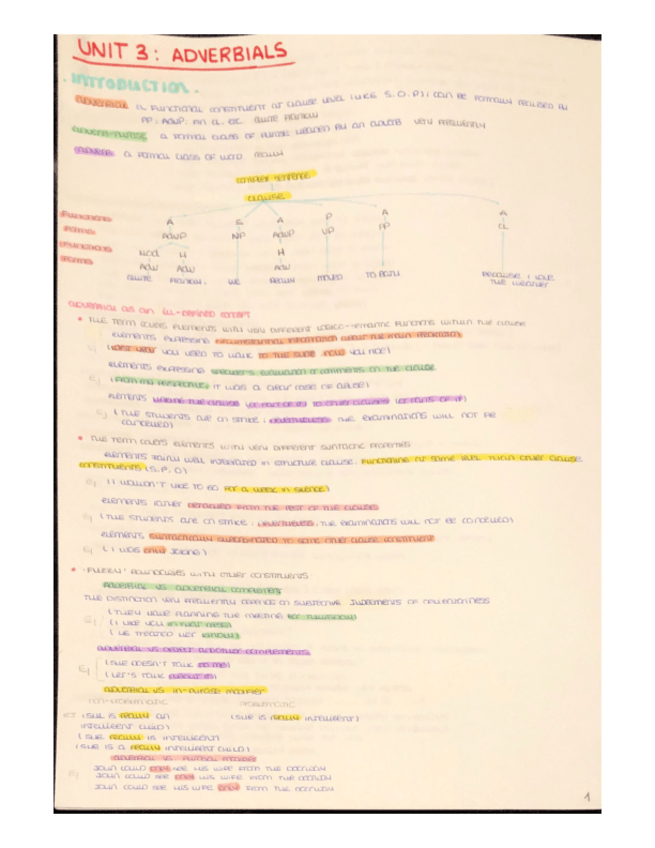 UNIT 3: ADVERBIALS
INTRODUCTION.
ADVERBIAL A FUNCTIONAL CONSTITUENT AT CLAUSE LEVEL (LIKE S, O, P); CAN BE FORMALLY REALISED BY
PP, ADVP, FIN CL, ETC. QUITE FRANKLY
ADVERB PHRASE A FORMAL CLASS OF PHRASE HEADED BY AN ADVERB VERY FREQUENTLY
ADVERB A FORMAL CLASS OF WORD REALLY
COMPLEX SENTENCE
CLAUSE
FUNCTIONS A S A P A A
FORMS ADVP NP ADVP VP PP CL
FUNCTIONS MOD H H
FORMS ADV ADV ADV
QUITE FRANKLY, WE REALLY MOVED TO BATH BECAUSE I LOVE
THE WEATHER
ADVERBIAL AS AN ILL-DEFINED CONCEPT
• THE TERM COVERS ELEMENTS WITH VERY DIFFERENT LOGICO-SEMANTIC FUNCTIONS WITHIN THE CLAUSE
ELEMENTS EXPRESSING CIRCUMSTANTIAL INFORMATION ABOUT THE MAIN PREDICATION
(LAST YEAR YOU USED TO WALK TO THE SHOP, NOW YOU RIDE)
ELEMENTS EXPRESSING SPEAKER'S EVALUATION OR COMMENTS ON THE CLAUSE
EJ (FROM MY PERSPECTIVE, IT WAS A CLEAR CASE OF ABUSE)
ELEMENTS LINKING THE CLAUSE (OR PART OF IT) TO OTHER CLAUSES (OR PARTS OF IT)
EJ (THE STUDENTS ARE ON STRIKE; NEVERTHELESS THE EXAMINATIONS WILL NOT BE
CANCELLED)
• THE TERM COVERS ELEMENTS WITH VERY DIFFERENT SYNTACTIC PROPERTIES
ELEMENTS FAIRLY WELL INTEGRATED IN STRUCTURE CLAUSE, FUNCTIONING AT SAME LEVEL THAN OTHER CLAUSE
CONSTITUENTS (S, P, O)
EJ (I WOULDN'T LIKE TO GO FOR A WEEK IN SILENCE)
ELEMENTS RATHER DETACHED FROM THE REST OF THE CLAUSES
EJ (THE STUDENTS ARE ON STRIKE; NEVERTHELESS, THE EXAMINATIONS WILL NOT BE CANCELLED)
ELEMENTS SYNTACTICALLY SUBORDINATED TO SOME OTHER CLAUSE CONSTITUENT
EJ (I WAS ONLY JOKING)
• 'FUZZY' BOUNDARIES WITH OTHER CONSTITUENTS
ADVERBIAL VS ADVERBIAL COMPLEMENT
THE DISTINCTION VERY FREQUENTLY DEPENDS ON SUBJECTIVE JUDGEMENTS OF
(THEY WERE PLANNING THE MEETING FOR TOMORROW)
EJ (I LIKE YOU IN THAT DRESS)
(HE TREATED HER KINDLY)
ADVERBIAL VS OBJECT AND OTHER COMPLEMENTS
(SHE DOESN'T TALK TO ME)
EJ (LET'S TALK ABOUT IT)
ADVERBIAL VS IN-PHRASE MODIFIER
NON-PROBLEMATIC PROBLEMATIC
(SHE IS REALLY AN (SHE IS REALLY INTELLIGENT)
INTELLIGENT CHILD)
(SHE REALLY IS INTELLIGENT)
(SHE IS A REALLY INTELLIGENT CHILD)
ADVERBIAL VS PHRASAL MODIFIER
JOHN COULD ONLY SEE HIS WIFE FROM THE DOORWAY
EJ JOHN COULD SEE ONLY HIS WIFE FROM THE DOORWAY
JOHN COULD SEE HIS WIFE ONLY FROM THE DOORWAY
1